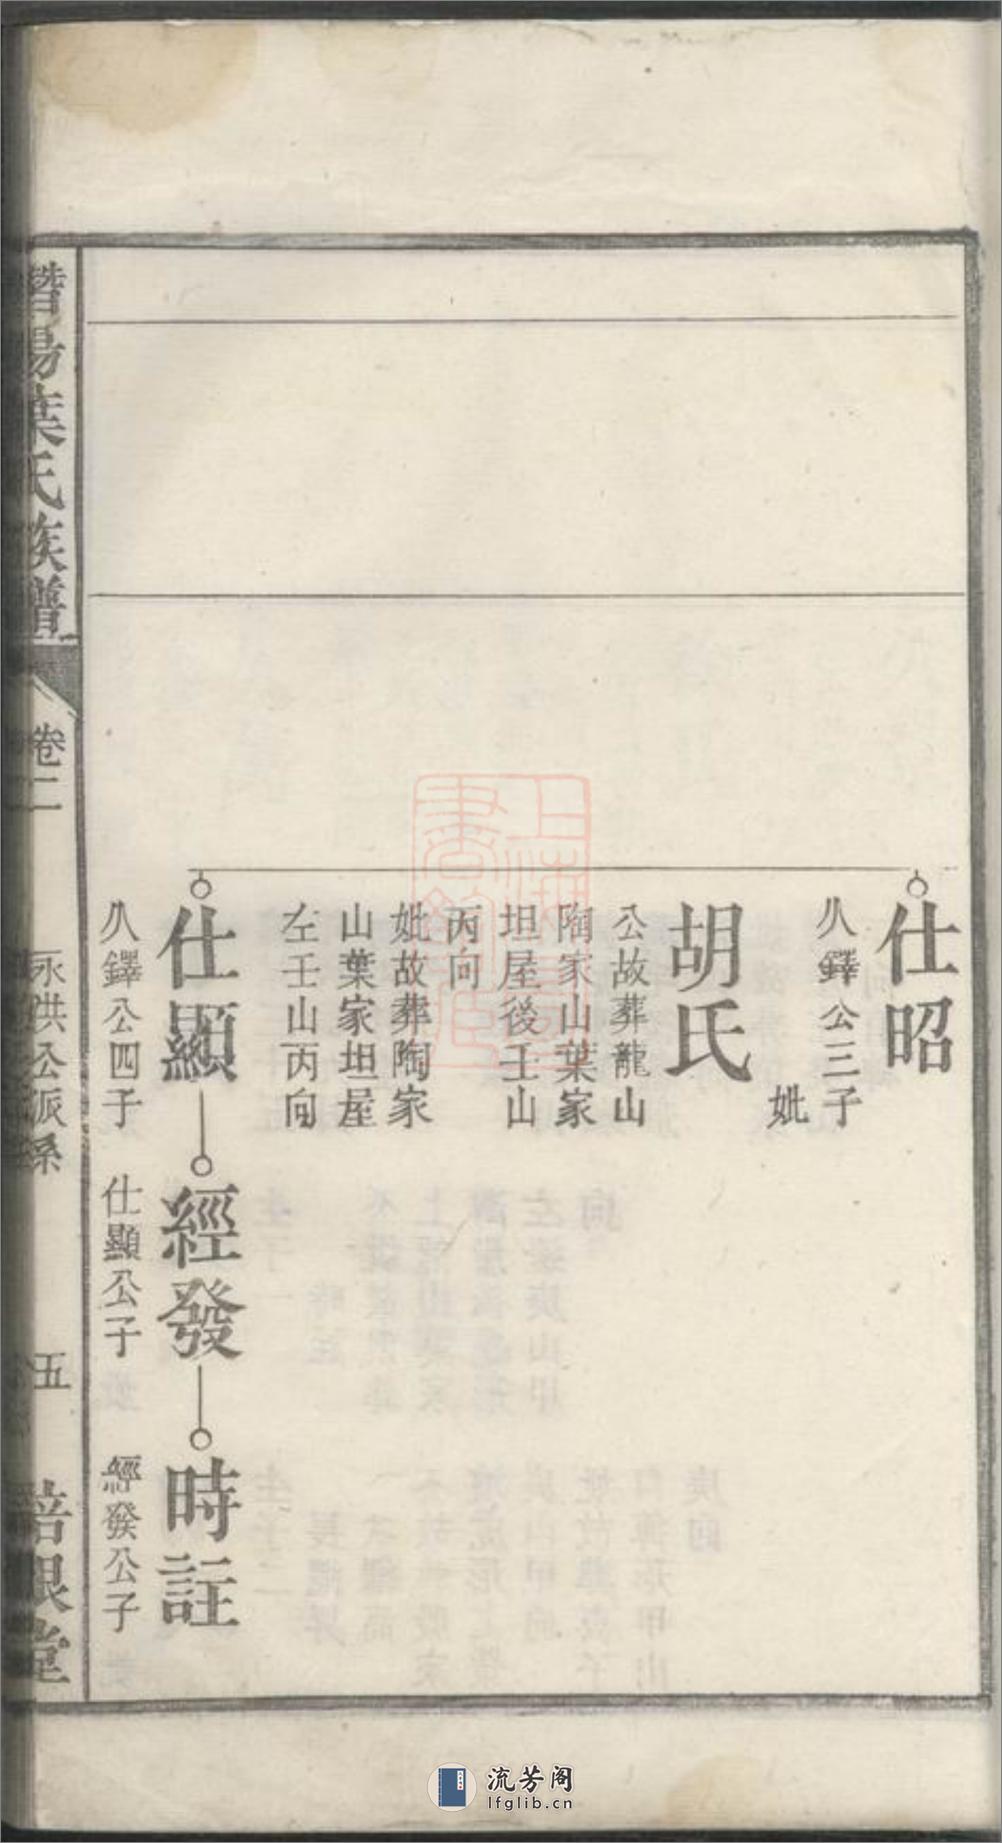 仕昭
久鐸公三子
妣
胡氏
公故葬龍山
陶家山葉家
坦屋後壬山
丙向
妣故葬陶家
山葉家坦屋
左壬山丙向
仕顯
久鐸公四子
經發
仕顯公子
時註
經發公子
陽葉氏族譜
卷二
永洪公派系
五
培根堂
上海圖書館藏
流芳阁
lfglib.cn